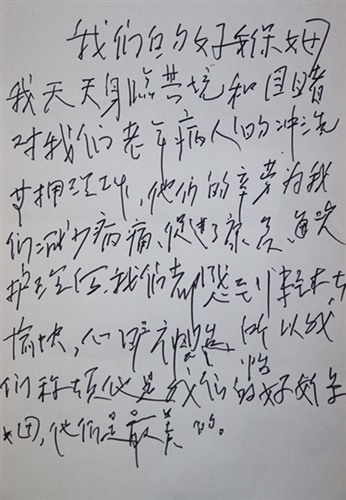 我们的好保姆
我天天身临其境和目睹
对我们老年病人的冲洗
护理工作,他们的辛劳为我
们减少病痛,促进了康复,通过
护理后我们都感到轻松与
愉快,心旷神怡,所以我
们称颂他是我们的好保
姆,他们是最美的。